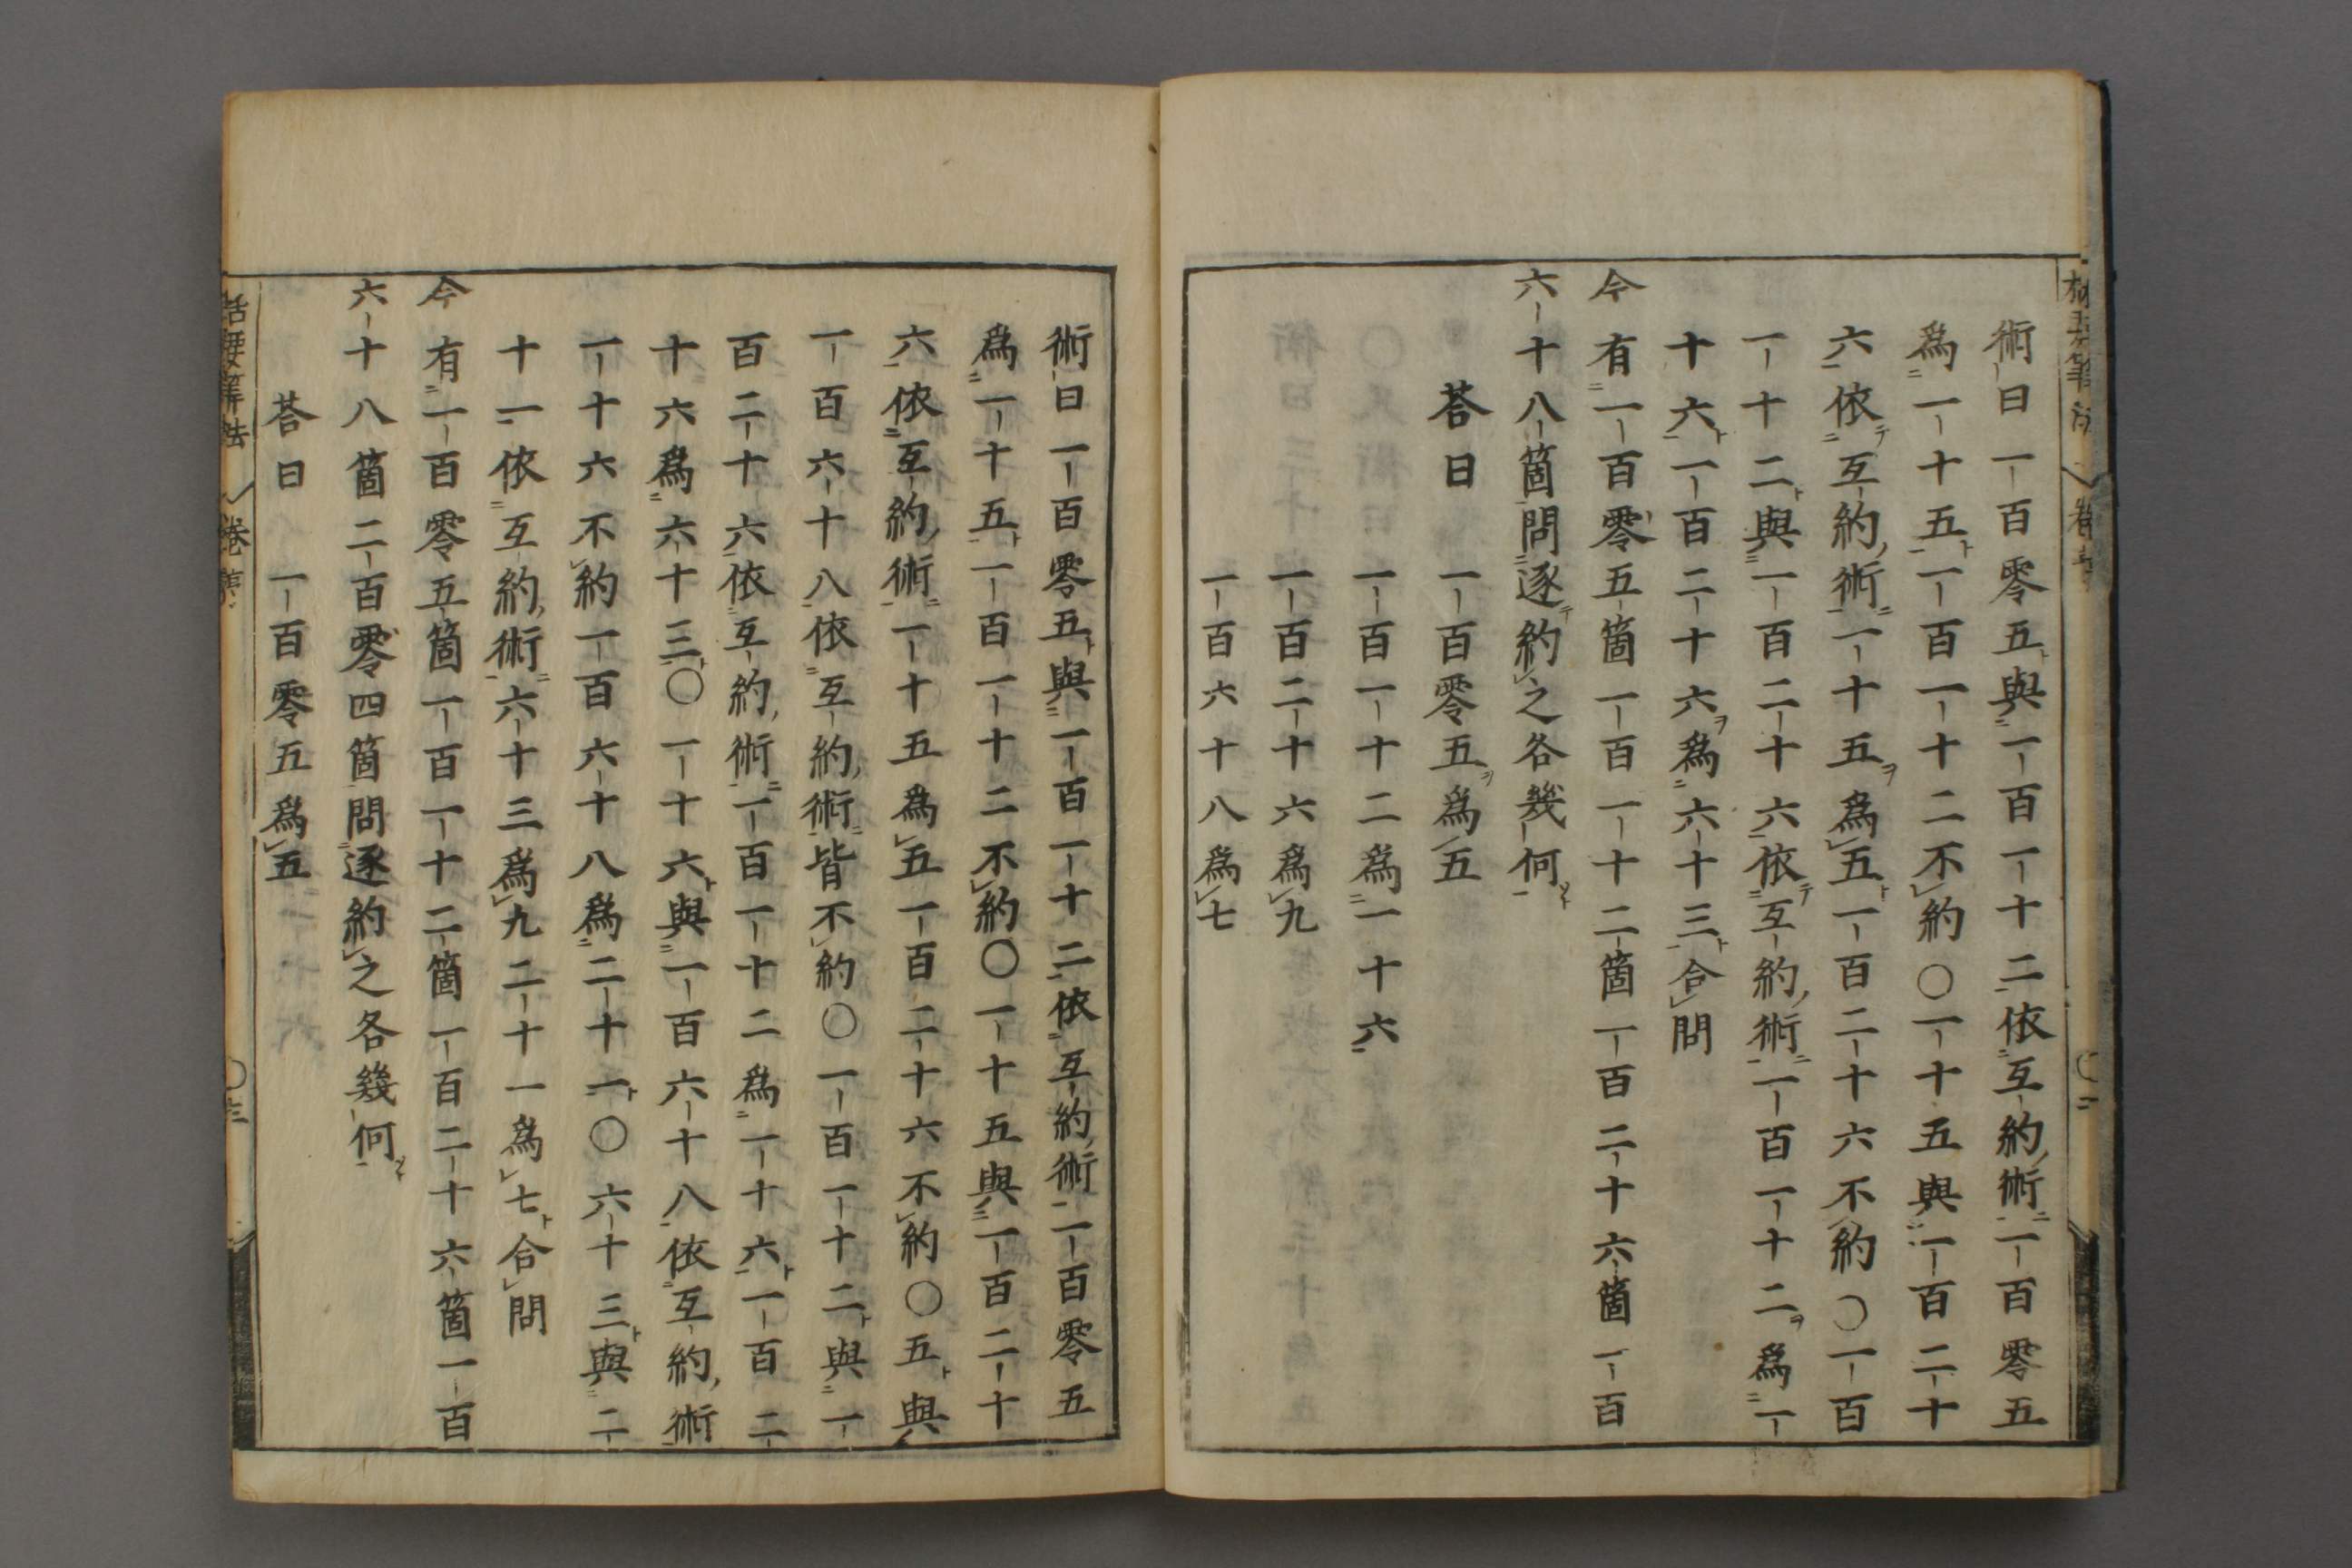 術曰一百零五與一百一十二依互約術一百零五
爲一十五一百一十二不約〇一十五與一百二十
六依互約術一十五爲五一百二十六不約〇一百
一十二與一百二十六依互約術一百一十二爲一
十六一百二十六爲六十三合問
今有一百零五箇一百一十二箇一百二十六箇一百
六十八箇問逐約之各幾何
荅曰 一百零五爲五
一百一十二爲一十六
一百二十六爲九
一百六十八爲七
術曰一百零五與一百一十二依互約術一百零五
爲一十五一百一十二不約〇一十五與一百二十
六依互約術一十五爲五一百二十六不約〇五與
一百六十八依互約術皆不約〇一百一十二與一
百二十六依互約術一百一十二爲一十六一百二
十六爲六十三〇一十六與一百六十八依互約術
一十六不約一百六十八爲二十一〇六十三與二
十一依互約術六十三爲九二十一爲七合問
今有一百零五箇一百一十二箇一百二十六箇一百
六十八箇二百零四箇問逐約之各幾何
荅曰 一百零五爲五
括要算法 卷亨 〇三